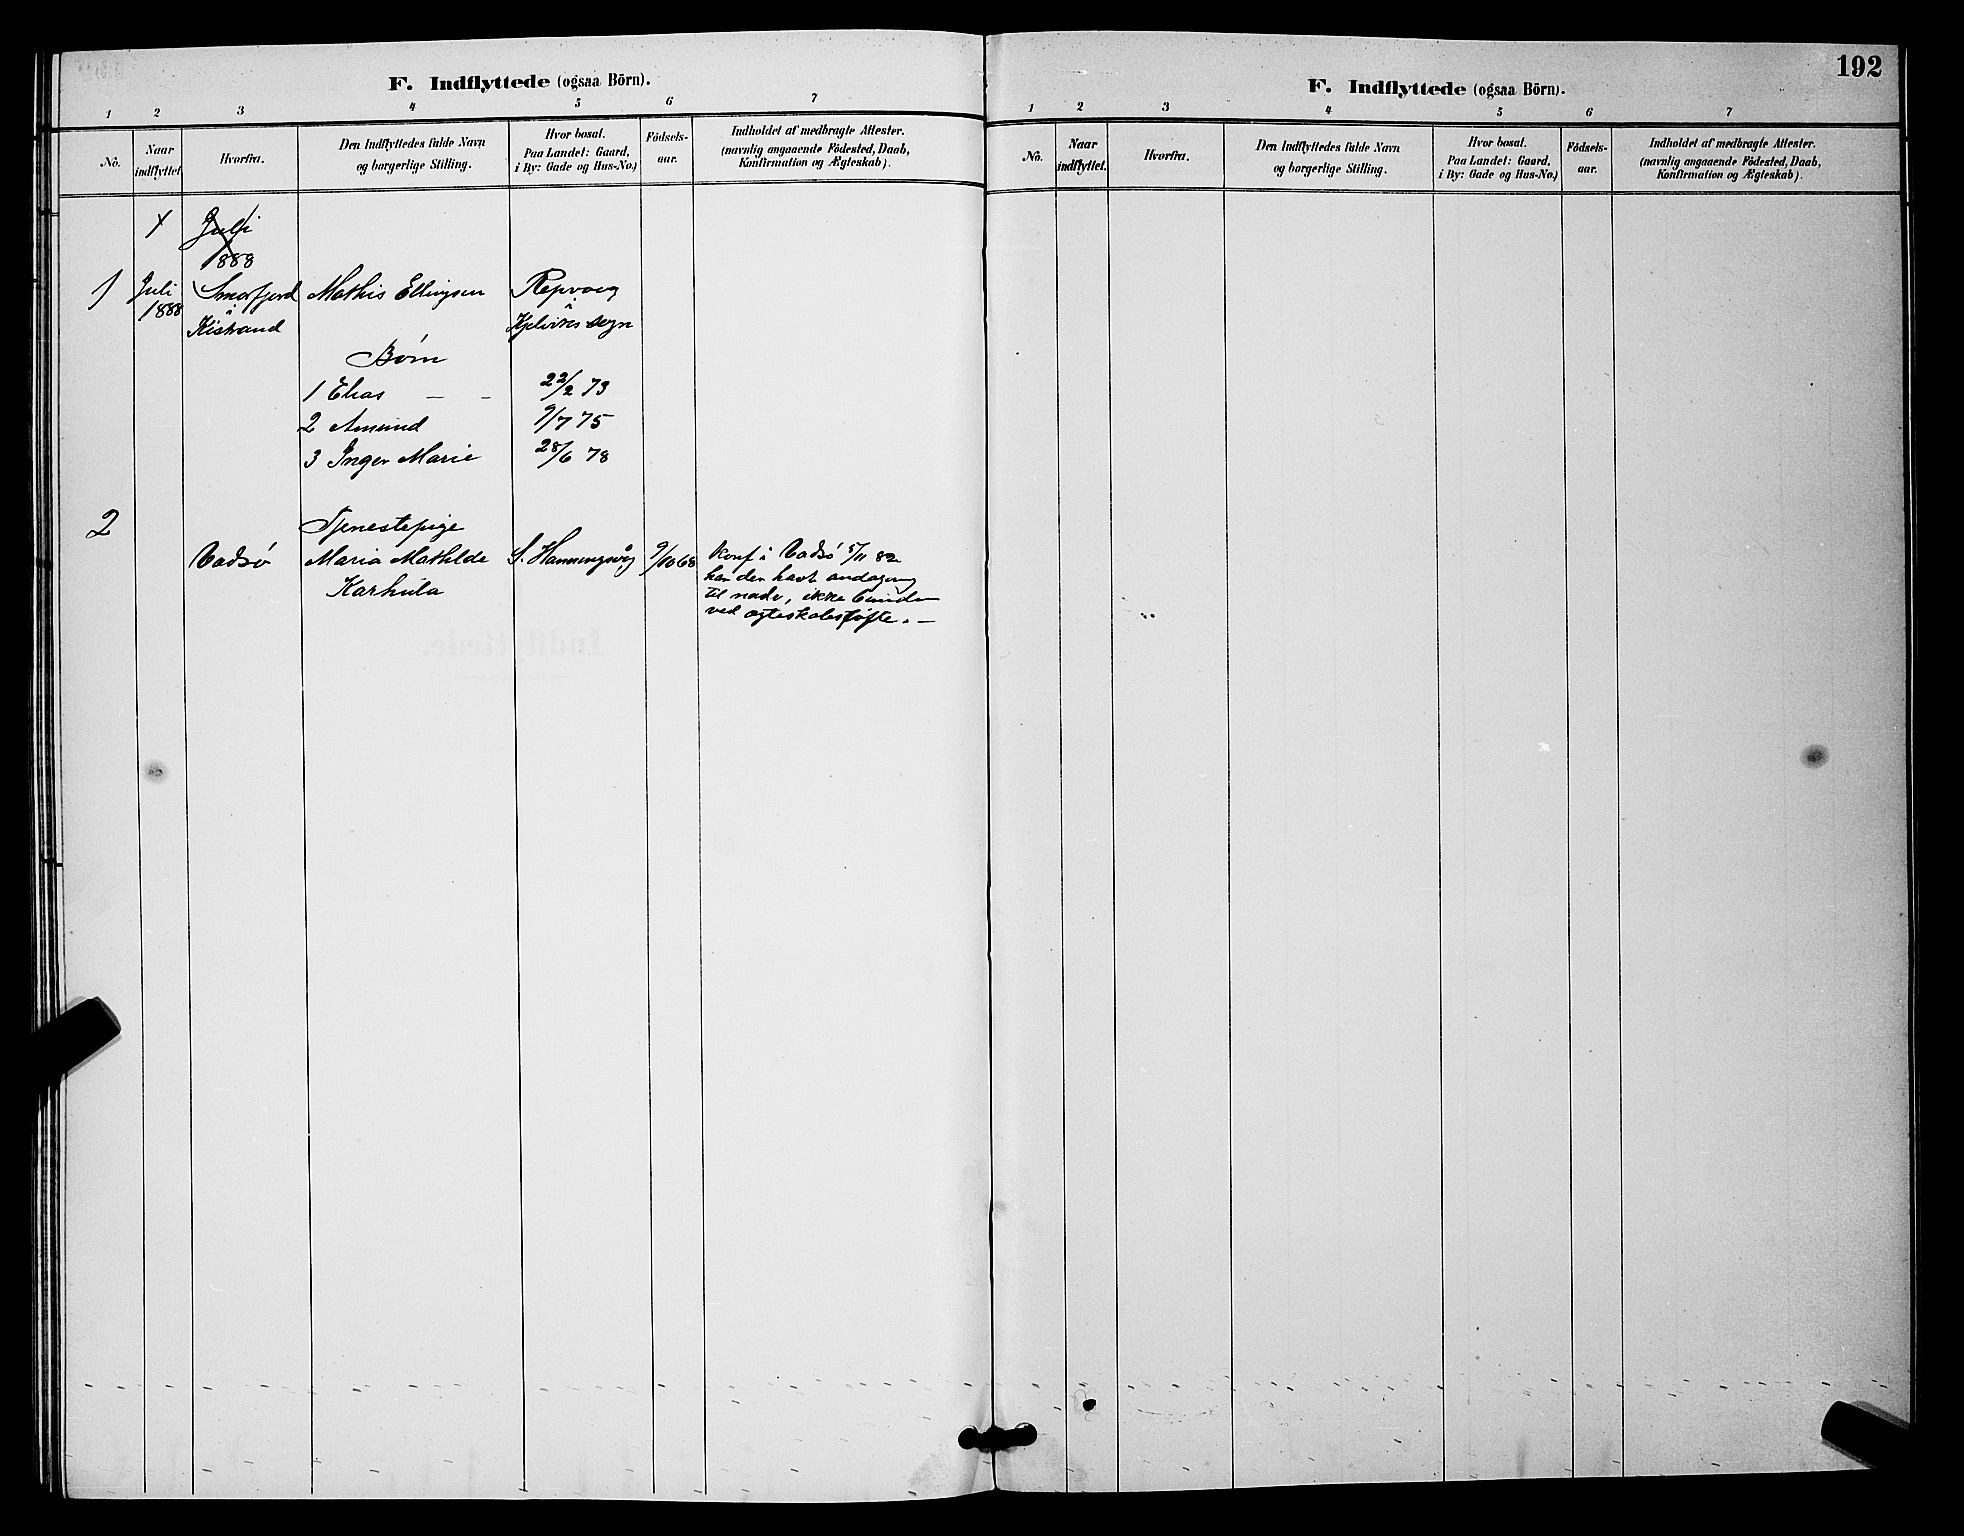 F. Indflyttede (ogsaa Börn).
1 2 3 4 5 6 7
No.
Naar indflyttet.
Hvorfra.
Den Indflyttedes fulde Navn og borgerlige Stilling.
Hvor bosat. Paa Landet: Gaard, i By: Gade og Hus-No.)
Födsels-aar.
Indholdet af medbragte Attester. (navnlig angaaende Födested, Daab, Konfirmation og Ægteskab).
Juli
1888
1 Juli Smørfjord Mathis Ellingsen Repvaag
1888 i i
Kistrand Kjelviks sogn
Børn
1 Elias — - 22/2 73
2 Amund 9/7 75
3 Inger Marie 28/6 78
2 Tjenestepige
Vadsø Maria Mathilde S. Honningsvåg 9/10 68 konf i Vadsø 5/11 82
Karhula
har den havt andagang
til nadv, ikke bunden
ved ægteskabsløfte. —
192
F. Indflyttede (ogsaa Börn).
1 2 3 4 5 6 7
No.
Naar indflyttet.
Hvorfra.
Den Indflyttedes fulde Navn og borgerlige Stilling.
Hvor bosat. Paa Landet: Gaard, i By: Gade og Hus-No.)
Födsels-aar.
Indholdet af medbragte Attester. (navnlig angaaende Födested, Daab, Konfirmation og Ægteskab).